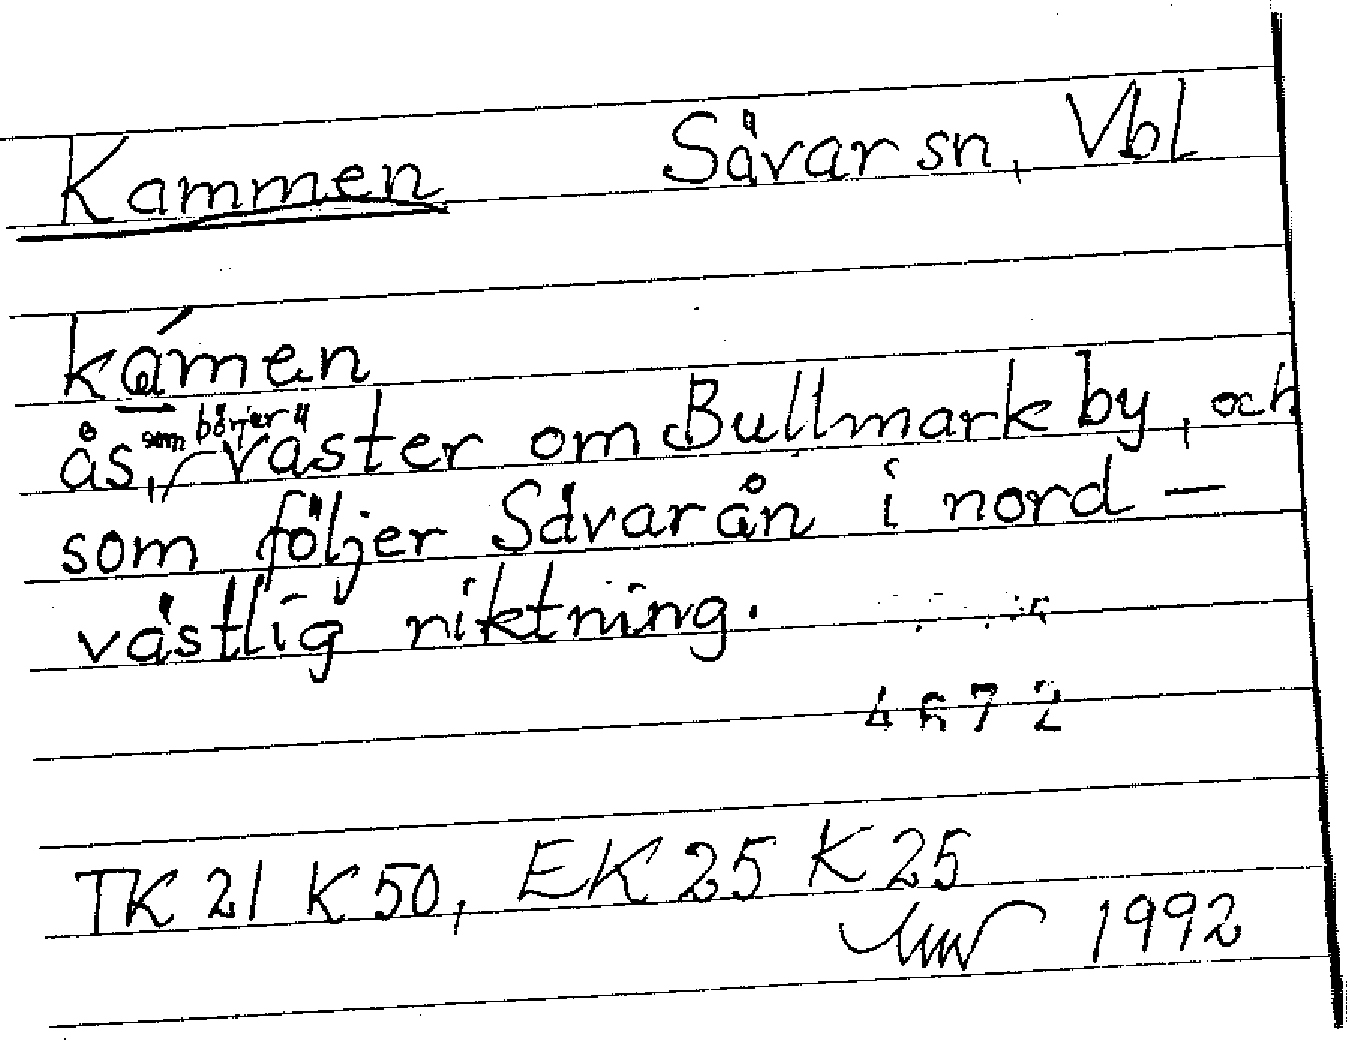 Kammen Sävar sn, Vbl
kámen
ås, som börjer väster om Bullmark by, och
som följer Sävarån i nord-
västlig riktning.
4672
TK 21 K 50, EK 25 K 25
1992